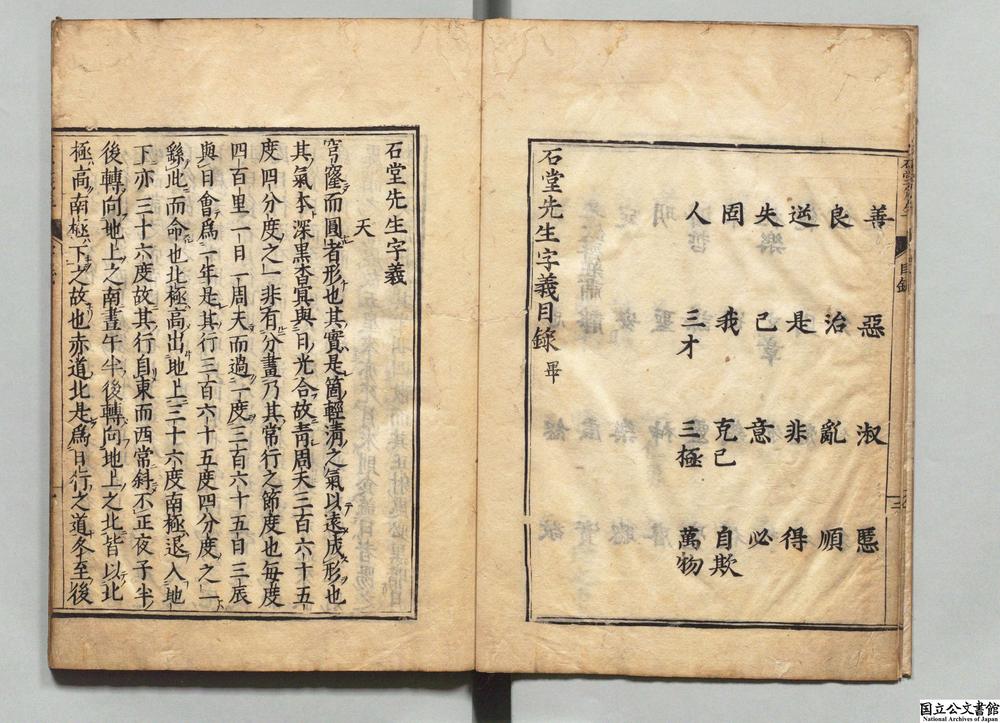 善 惡 淑 慝
良 治 亂 順
逆 是 非 得
失 已 意 必
固 我 克已 自欺
人 三才 三極 萬物
石堂先生字義目錄 畢
目錄
三
石堂先生字義
天
穹窿而圓者形也其實是箇輕淸之氣以遠成形也
其氣本深黑杳冥與日光合故靑周天三百六十五
度四分度之一非有分畫乃其常行之節度也每度
四百里一日一周天而過一度三百六十五日三辰
與日會爲一年是其行三百六十五度四分度之一
繇此而命也北極高出地上三十六度南極退入地
下亦三十六度故其行自東而西常斜不正夜子半
後轉向地上之南晝午半後轉向地上之北皆以北
極高南極下之故也赤道北是爲日行之道冬至後
国立公文書館
National Archives of Japan